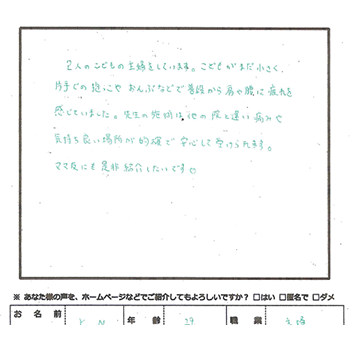 2人のこどもの主婦をしています。こどもがまだ小さく、
片手での抱っこや おんぶなどで普段から肩や腰に疲れを
感じていました。先生の施術は他の院と違い痛みや
気持ち良い場所が的確で安心して受けられます。
ママ友にも是非紹介したいです。
※ あなた様の声を、ホームページなどでご紹介してもよろしいですか？ □はい □匿名で □ダメ
お名前 K N 年齢 29 職業 主婦